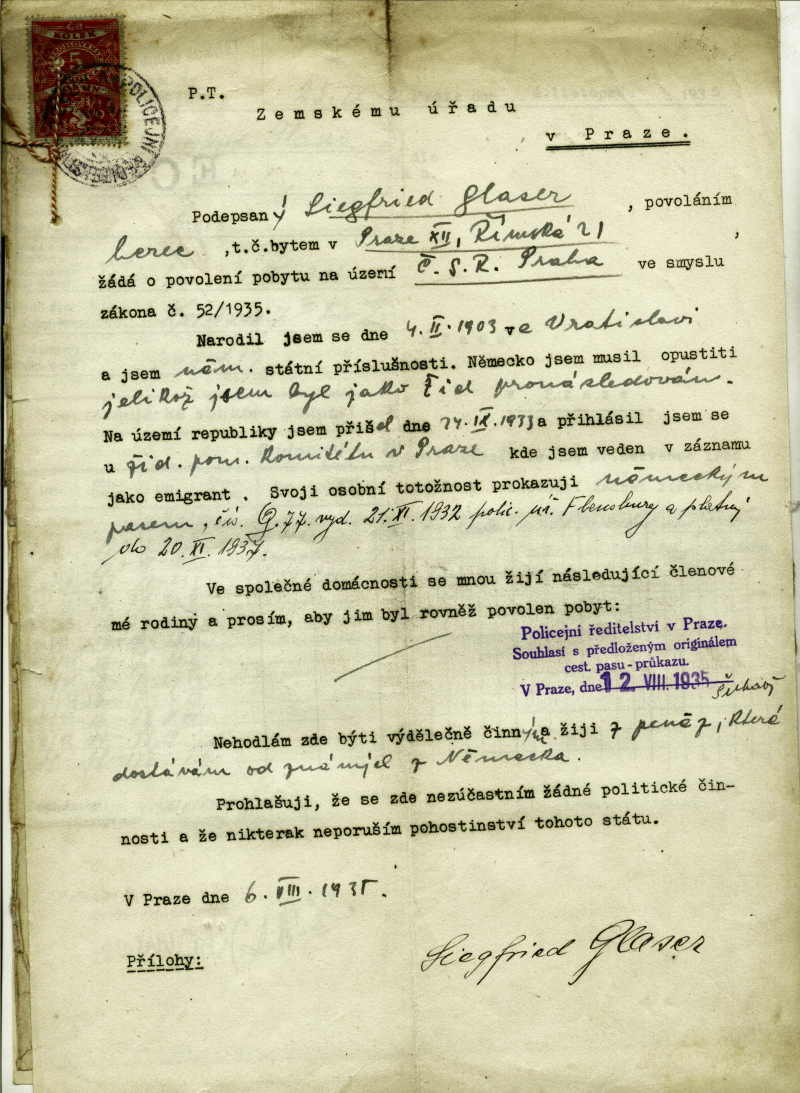 KOLEK
5
POLICEJNÍ
P.T.
Zemskému úřadu
v Praze.
Podepsaný Siegfried Glaser, povoláním
herec, t.č. bytem v Praze XII, Římská 21,
žádá o povolení pobytu na území Č.S.R. Praha ve smyslu
zákona č. 52/1935.
Narodil jsem se dne 4.II.1903 ve Vratislavi
a jsem něm. státní příslušnosti. Německo jsem musil opustiti
jelikož jsem byl jako žid pronásledován.
Na území republiky jsem přišel dne 24.IX.1933 a přihlásil jsem se
u žid. pom. Komitétu v Praze kde jsem veden v záznamu
jako emigrant. Svoji osobní totožnost prokazuji německým
pasem, čís. G.77. vyd. 21.XI.1932 polic. uř. Flensburg a platný
do 20.XI.1937.
Ve společné domácnosti se mnou žijí následující členové
mé rodiny a prosím, aby jim byl rovněž povolen pobyt:
Policejní ředitelství v Praze.
Souhlasí s předloženým originálem
cest. pasu-průkazu.
V Praze, dne 12. VIII. 1935
Nehodlám zde býti výdělečně činný a žiji z peněz, které
dostávám od známých z Německa.
Prohlašuji, že se zde nezúčastním žádné politické čin-
nosti a že nikterak neporuším pohostinství tohoto státu.
V Praze dne 6.VIII.1935.
Přílohy:
Siegfried Glaser